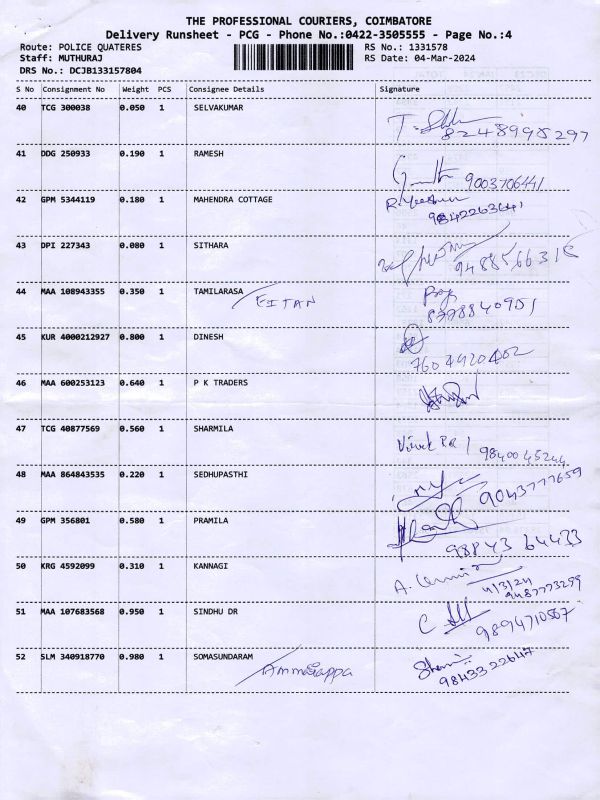 THE PROFESSIONAL COURIERS, COIMBATORE
Delivery Runsheet - PCG - Phone No.:0422-3505555 - Page No.:4
Route: POLICE QUATERES RS No.: 1331578
Staff: MUTHURAJ RS Date: 04-Mar-2024
DRS No.: DCJB133157804
S No Consignment No Weight PCS Consignee Details Signature
40 TCG 300038 0.050 1 SELVAKUMAR
8248998297
41 DDG 250933 0.190 1 RAMESH
9003706441
42 GPM 5344119 0.180 1 MAHENDRA COTTAGE
9842263641
43 DPI 227343 0.080 1 SITHARA
44 MAA 108943355 0.350 1 TAMILARASA
EITAN
8778840951
45 KUR 4000212927 0.800 1 DINESH
7604920402
46 MAA 600253123 0.640 1 P K TRADERS
47 TCG 40877569 0.560 1 SHARMILA
9840045244
48 MAA 864843535 0.220 1 SEDHUPASTHI
9043777659
49 GPM 356801 0.580 1 PRAMILA
98843 64433
50 KRG 4592099 0.310 1 KANNAGI
4/3/24
9487773299
51 MAA 107683568 0.950 1 SINDHU DR
9894710567
52 SLM 340918770 0.980 1 SOMASUNDARAM
9843322647